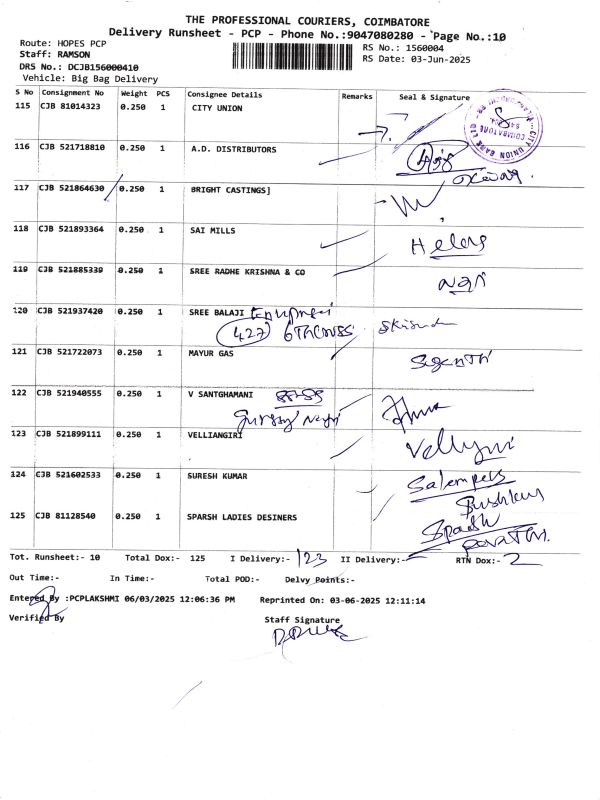 THE PROFESSIONAL COURIERS, COIMBATORE
Delivery Runsheet - PCP - Phone No.:9047080280 - Page No.:10
Route: HOPES PCP
RS No.: 1560004
Staff: RAMSON
RS Date: 03-Jun-2025
DRS No.: DCJB156000410
Vehicle: Big Bag Delivery
S No Consignment No Weight PCS Consignee Details Remarks Seal & Signature
115 CJB 81014323 0.250 1 CITY UNION
CITY UNION BANK COIMBATORE
116 CJB 521718810 0.250 1 A.D. DISTRIBUTORS
117 CJB 521864630 0.250 1 BRIGHT CASTINGS]
118 CJB 521893364 0.250 1 SAI MILLS
119 CJB 521885339 0.250 1 SREE RADHE KRISHNA & CO
120 CJB 521937420 0.250 1 SREE BALAJI
427 6th cross
121 CJB 521722073 0.250 1 MAYUR GAS
122 CJB 521940555 0.250 1 V SANTGHAMANI
123 CJB 521899111 0.250 1 VELLIANGIRI
124 CJB 521602533 0.250 1 SURESH KUMAR
125 CJB 81128540 0.250 1 SPARSH LADIES DESINERS
Sparsh
Tot. Runsheet:- 10 Total Dox:- 125 I Delivery:- 123 II Delivery:- RTN Dox:- 2
Out Time:- In Time:- Total POD:- Delvy Points:-
Entered By :PCPLAKSHMI 06/03/2025 12:06:36 PM Reprinted On: 03-06-2025 12:11:14
Verified By Staff Signature